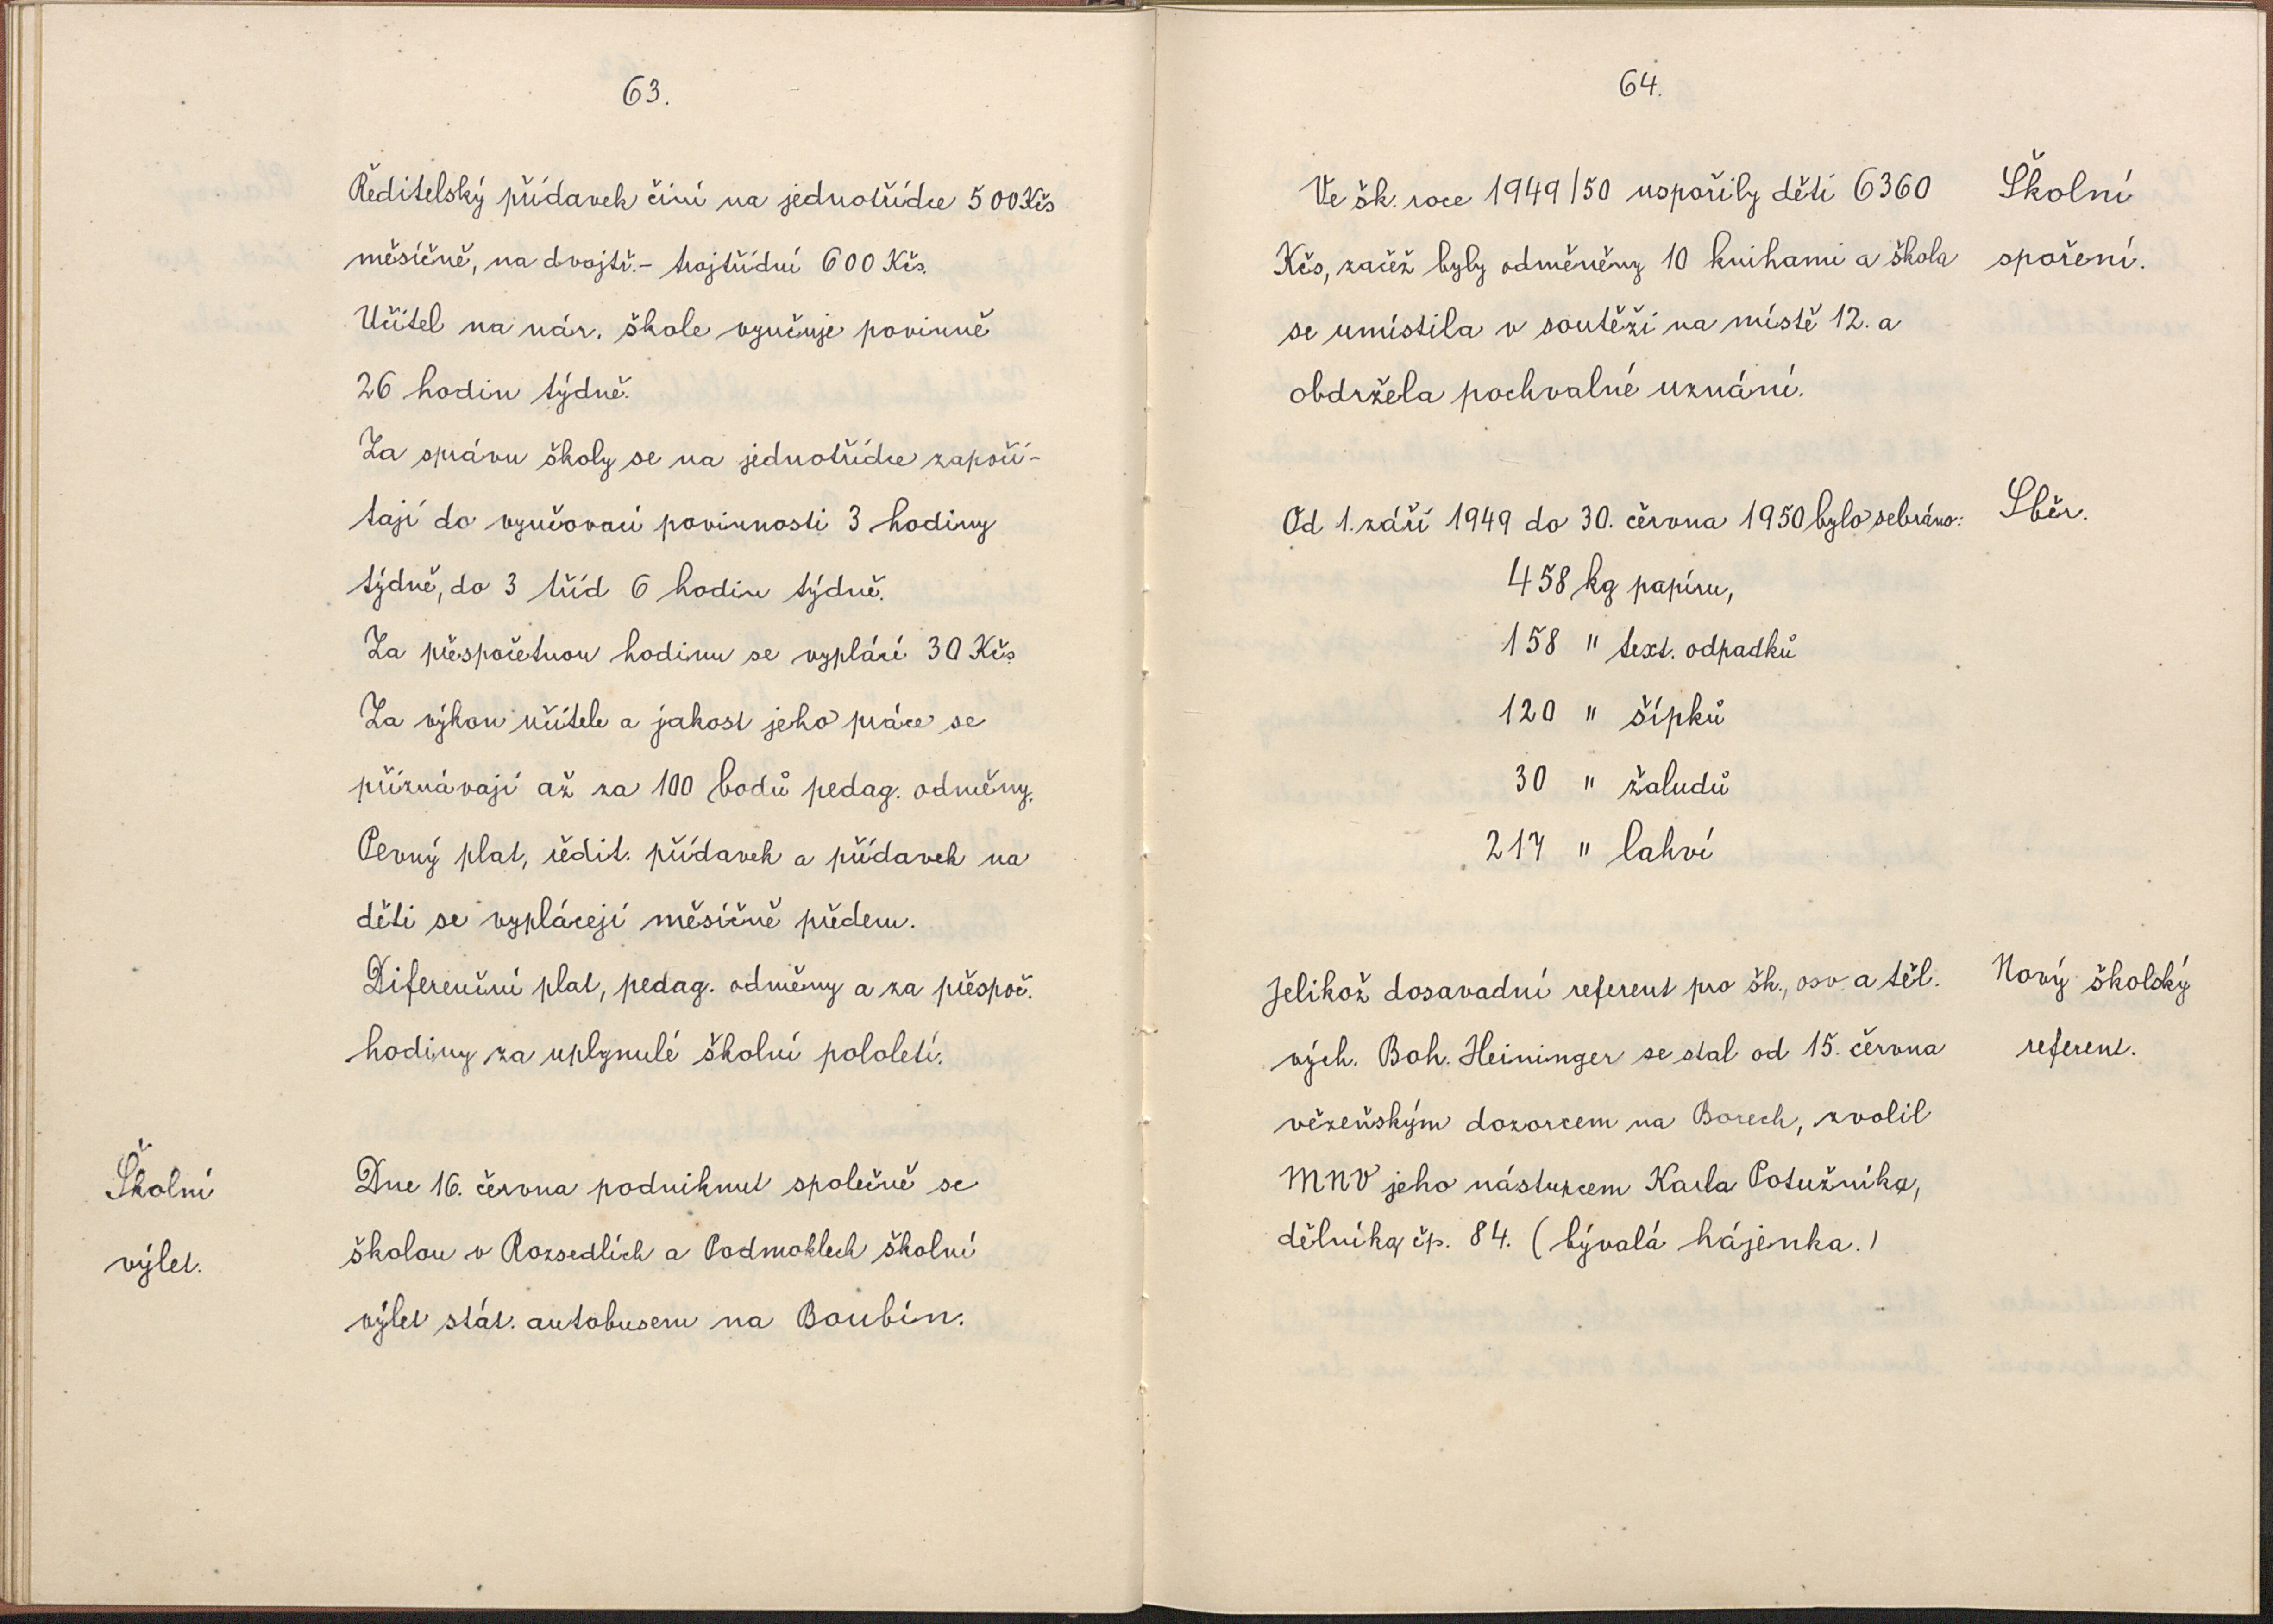 63.
Ředitelský přídavek činí na jednotřídce 500 Kčs
měsíčně, na dvojtř.- trojtřídní 600 Kčs.
Učitel na nár. škole vyučuje povinně
26 hodin týdně.
Za správu školy se na jednotřídce započí-
tají do vyučovací povinnosti 3 hodiny
týdně, do 3 tříd 6 hodin týdně.
Za přespočetnou hodinu se vyplácí 30 Kčs
Za výkon učitele a jakost jeho práce se
přiznávají až za 100 bodů pedag. odměny.
Pevný plat, ředit. přídavek a přídavek na
děti se vyplácejí měsíčně předem.
Diferenční plat, pedag. odměny a za přespoč.
hodiny za uplynulé školní pololetí.
Školní
výlet.
Dne 16. června podniknut společně se
školou v Rozsedlích a Podmoklech školní
výlet stát. autobusem na Boubín.
64.
Ve šk. roce 1949/50 uspořily děti 6360
Kčs, začež byly odměněny 10 knihami a škola
se umístila v soutěži na místě 12. a
obdržela pochvalné uznání.
Školní
spoření.
Od 1. září 1949 do 30. června 1950 bylo sebráno:
Sběr.
458 kg papíru,
158 " text. odpadků
120 " šípků
30 " žaludů
217 " lahví
Jelikož dosavadní referent pro šk., osv. a těl.
vých. Boh. Heininger se stal od 15. června
vězeňským dozorcem na Borech, zvolil
MNV jeho nástupcem Karla Potužníka,
dělníka, čp. 84. (bývalá hájenka.)
Nový školský
referent.